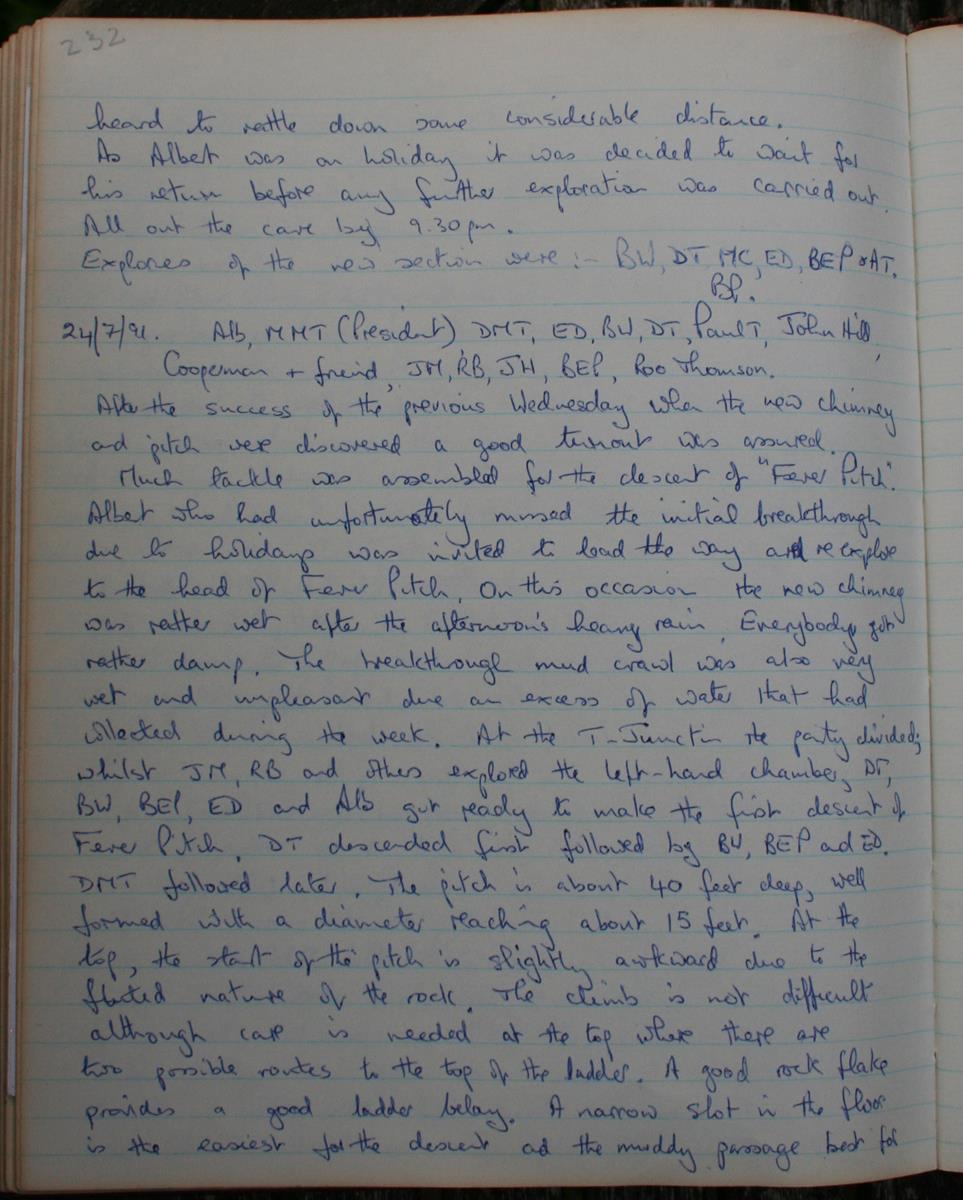 232
heard to rattle down some considerable distance.
As Albert was on holiday it was decided to wait for
his return before any further exploration was carried out.
All out the cave by 9.30pm.
Explorers of the new section were :- BW, DT, MC, ED, BEP & AT.
BP.
24/7/91. Alb, MMT (President) DMT, ED, BW, DT, Paul T, John Hill,
Cooperman + freind, JM, RB, JH, BEP, Roo Thomson.
After the success of the previous Wednesday when the new chimney
and pitch were discovered a good turnout was assured.
Much tackle was assembled for the descent of "Fever Pitch".
Albert who had unfortunately missed the initial breakthrough
due to holidays was invited to lead the way and re explore
to the head of Fever Pitch. On this occasion the new chimney
was rather wet after the afternoon's heavy rain. Everybody got
rather damp. The breakthrough mud crawl was also very
wet and unpleasant due an excess of water that had
collected during the week. At the T-Junction the party divided;
whilst JM, RB and others explored the left-hand chamber, DT,
BW, BEP, ED and Alb got ready to make the first descent of
Fever Pitch. DT descended first followed by BW, BEP and ED.
DMT followed later. The pitch is about 40 feet deep, well
formed with a diameter reaching about 15 feet. At the
top, the start of the pitch is slightly awkward due to the
fluted nature of the rock. The climb is not difficult
although care is needed at the top where there are
two possible routes to the top of the ladder. A good rock flake
provides a good ladder belay. A narrow slot in the floor
is the easiest for the descent ad the muddy passage best for